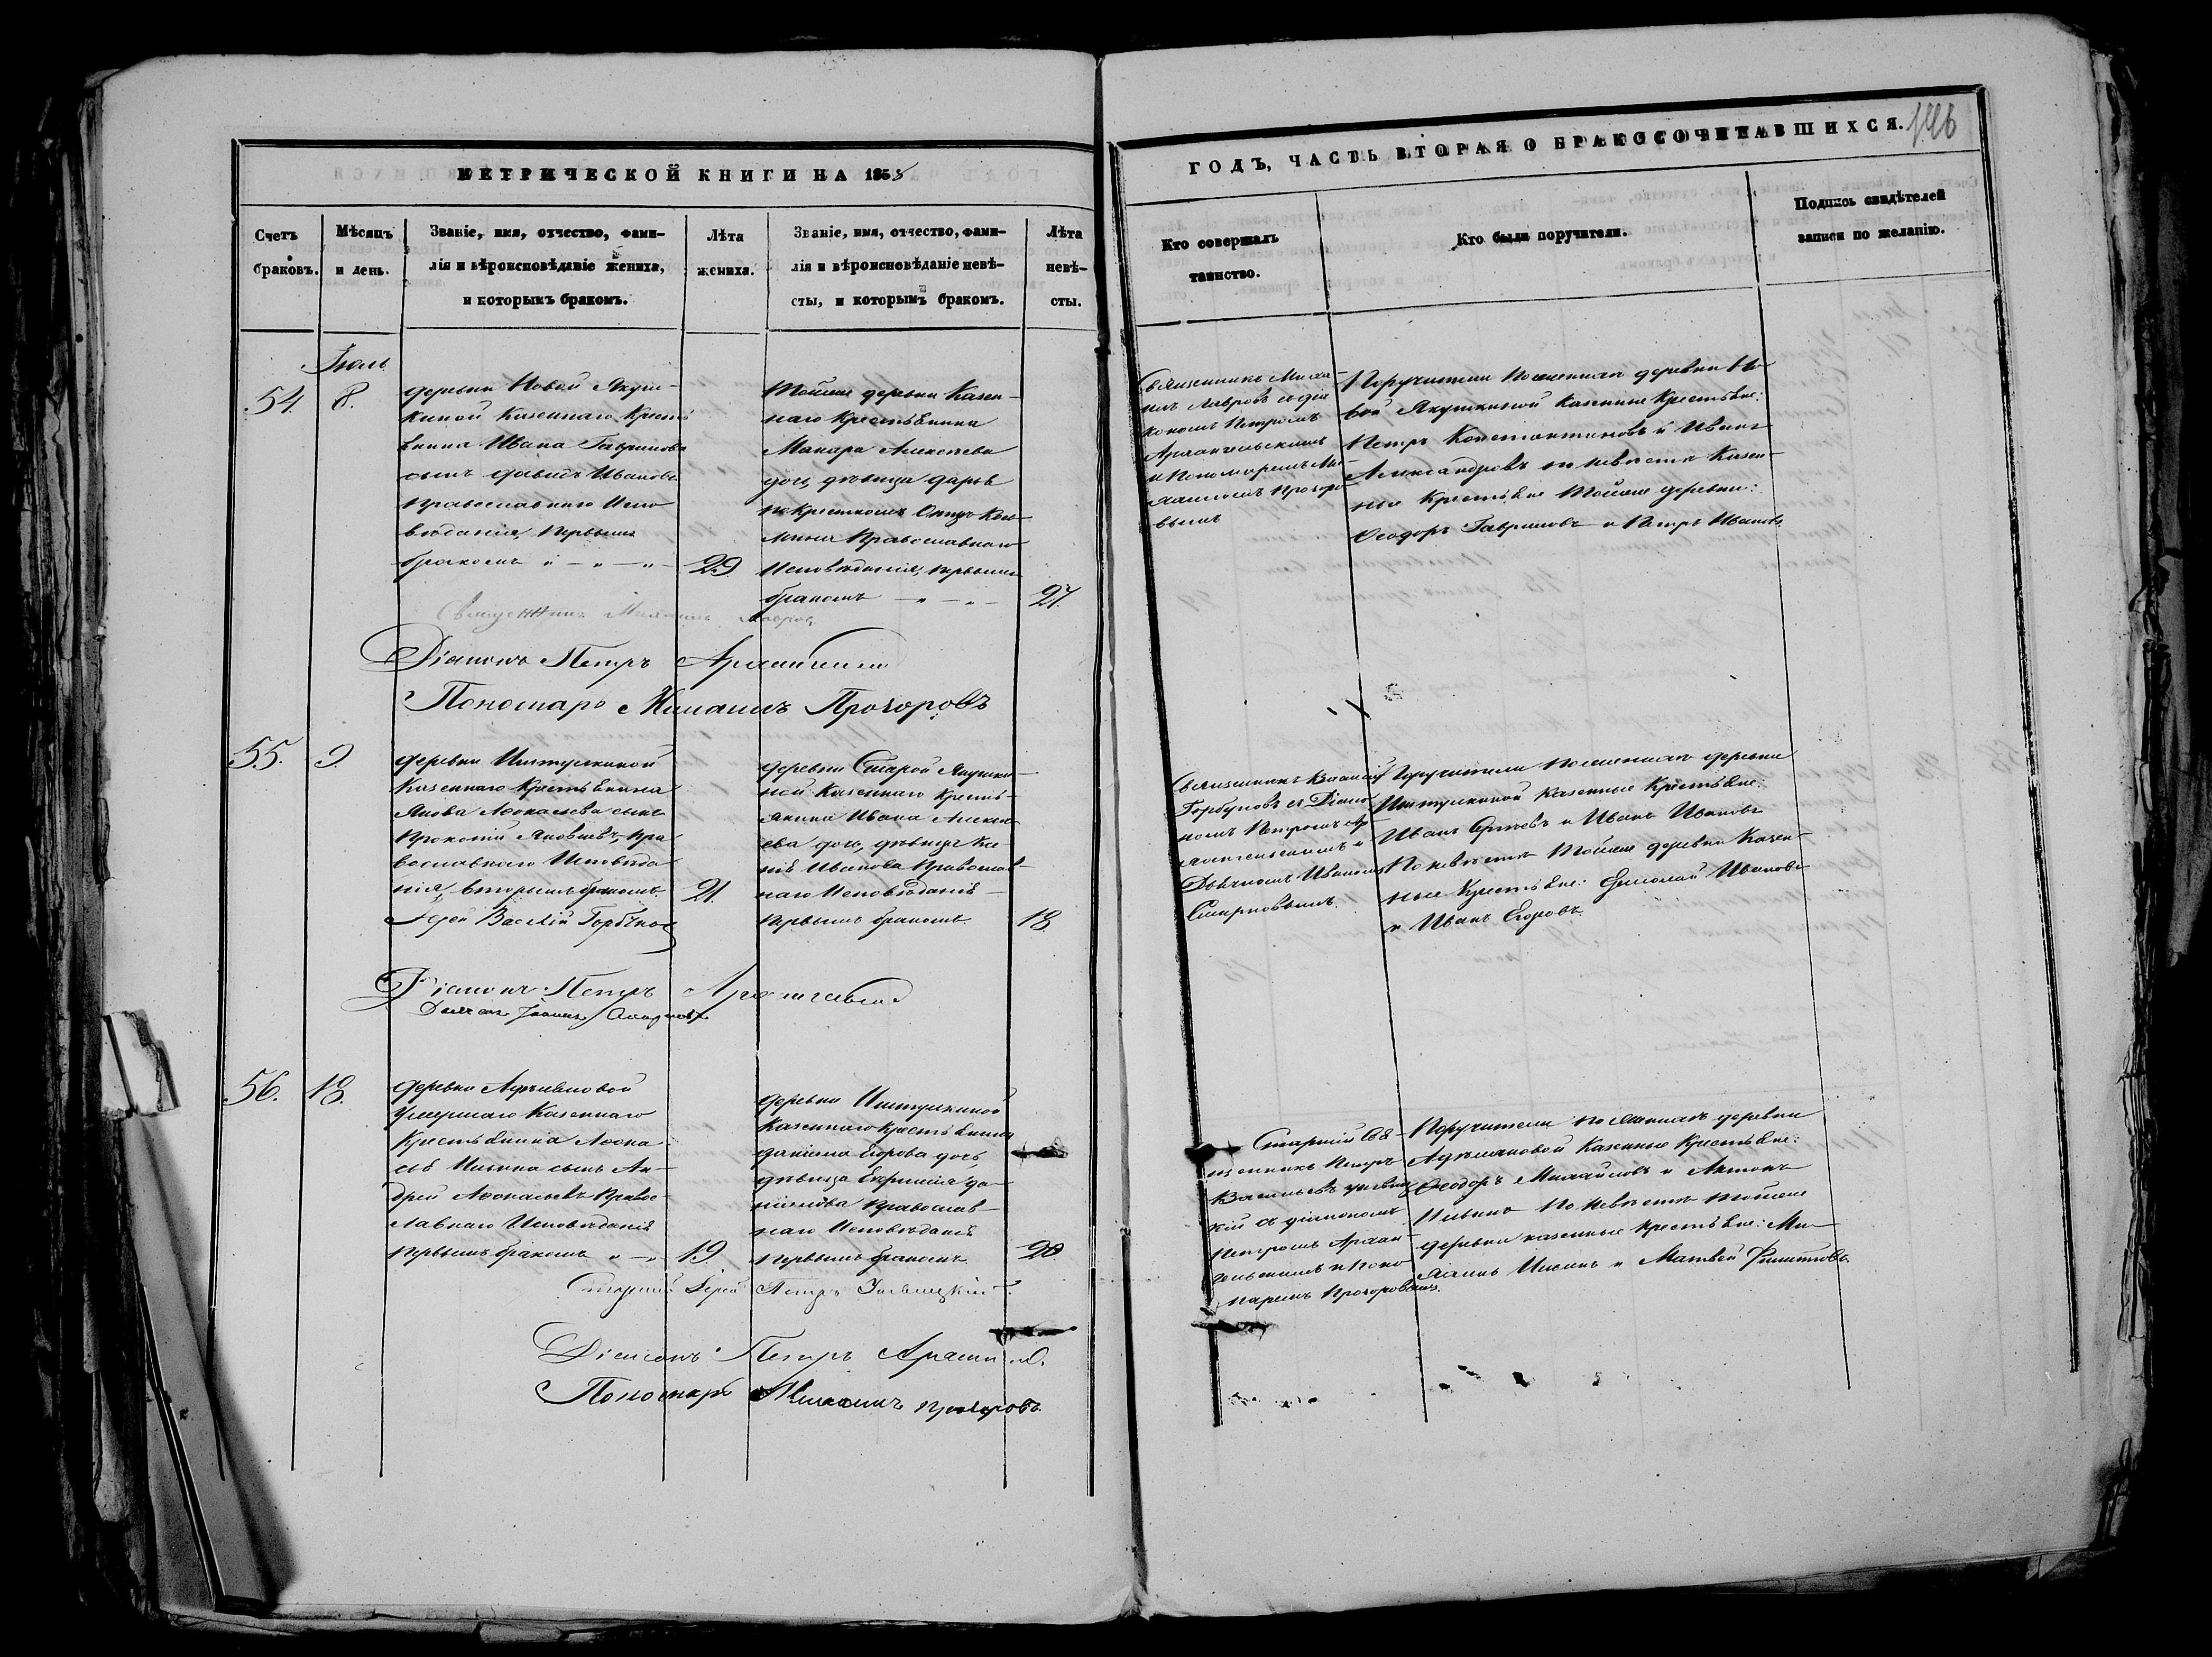 МЕТРИЧЕСКОЙ КНИГИ НА 1855
Счетъ браковъ.
Мѣсяцъ и день.
Званіе, имя, отчество, фами-
лія и вѣроисповѣданіе жениха,
и которымъ бракомъ.
Лѣта жениха.
Званіе, имя, отчество, фами-
лія и вѣроисповѣданіе невѣ-
сты, и которымъ бракомъ.
Лѣта невѣ-
сты.
ГОДЪ, ЧАСТЬ ВТОРАЯ О БРАКОСОЧЕТАВШИХСЯ.
146
Кто совершалъ
таинство.
Кто были поручители.
Подпись свидѣтелей
записи по желанію.
Іюль
54.
8.
деревни Новой Якуш-
киной Казеннаго Кресть
янина Ивана Гаврилова
сынъ Давидъ Ивановъ
Православнаго Испо
вѣданія, первымъ
бракомъ
29
Тойже деревни Казен-
наго Крестьянина
Макара Алексѣева
дочь, дѣвица Дарья
по крестномъ Отцѣ
Православнаго
Исповѣданія, первымъ
бракомъ
27.
Священникъ Миха-
илъ Лавровъ съ діа
кономъ Петромъ
Архангельскимъ
и Пономаремъ Ми-
хаиломъ Прохоро
вымъ
Поручители по женихѣ деревни Но-
вой Якушкиной Казенные Крестьяне:
Петръ Константиновъ и Иванъ
Александровъ по невѣстѣ Казен-
ные Крестьяне Тойже деревни:
Ѳеодоръ Гавриловъ и Петръ Ивановъ
Священникъ Михаилъ Лавровъ
Діаконъ Петръ Архангельскій
Пономарь Михаилъ Прохоровъ
55.
9.
деревни Иштулкиной
Казеннаго Крестьянина
Якова Аѳонасьева сынъ
Прокопій Яковлевъ, Пра-
вославнаго Исповѣда
нія, вторымъ бракомъ.
21.
деревни Старой Якушки-
ной Казеннаго Кресть-
янина Ивана Алексѣ-
ева дочь, дѣвица Ксе
нія Иванова Православ-
наго Исповѣданія
первымъ бракомъ
18
Священникъ Василій
Горбуновъ съ Діако-
номъ Петромъ Ар-
хангельскимъ и
Дьячкомъ Иваномъ
Смирновымъ.
Поручители по женихѣ деревни
Иштулкиной Казенные Крестьяне:
Иванъ Сергѣевъ и Иванъ Ивановъ
По невѣстѣ Тойже деревни Казен-
ные Крестьяне: Ермолай Ивановъ
и Иванъ Егоровъ.
Іерей Василій Горбуновъ
Діаконъ Петръ Архангельскій
Дьячекъ Іоаннъ Смирновъ
56.
18.
деревни
Умершаго Казеннаго
Крестьянина Аѳона
сія Ильина сынъ Ан-
дрей Аѳонасьевъ Правос-
лавнаго Исповѣданія
первымъ бракомъ
19.
деревни Иштулкиной
Казеннаго Крестьянина
Даніила Егорова дочь,
дѣвица Евфимія Да-
ніилова Православ-
наго Исповѣданія
первымъ бракомъ
20.
Старшій Свя-
щенникъ Петръ
Васильевъ
кій съ діакономъ
Петромъ Архан-
гельскимъ и Поно
маремъ Прохоровымъ.
Поручители по женихѣ деревни
Казенные Крестьяне:
Ѳеодоръ Михайловъ и Антонъ
Ильинъ По невѣстѣ тойже
деревни казенные крестьяне: Ми-
хаилъ и Матвей Филиповъ.
Старшій Іерей Петръ
Діаконъ Петръ
Пономарь Михаилъ Прохоровъ